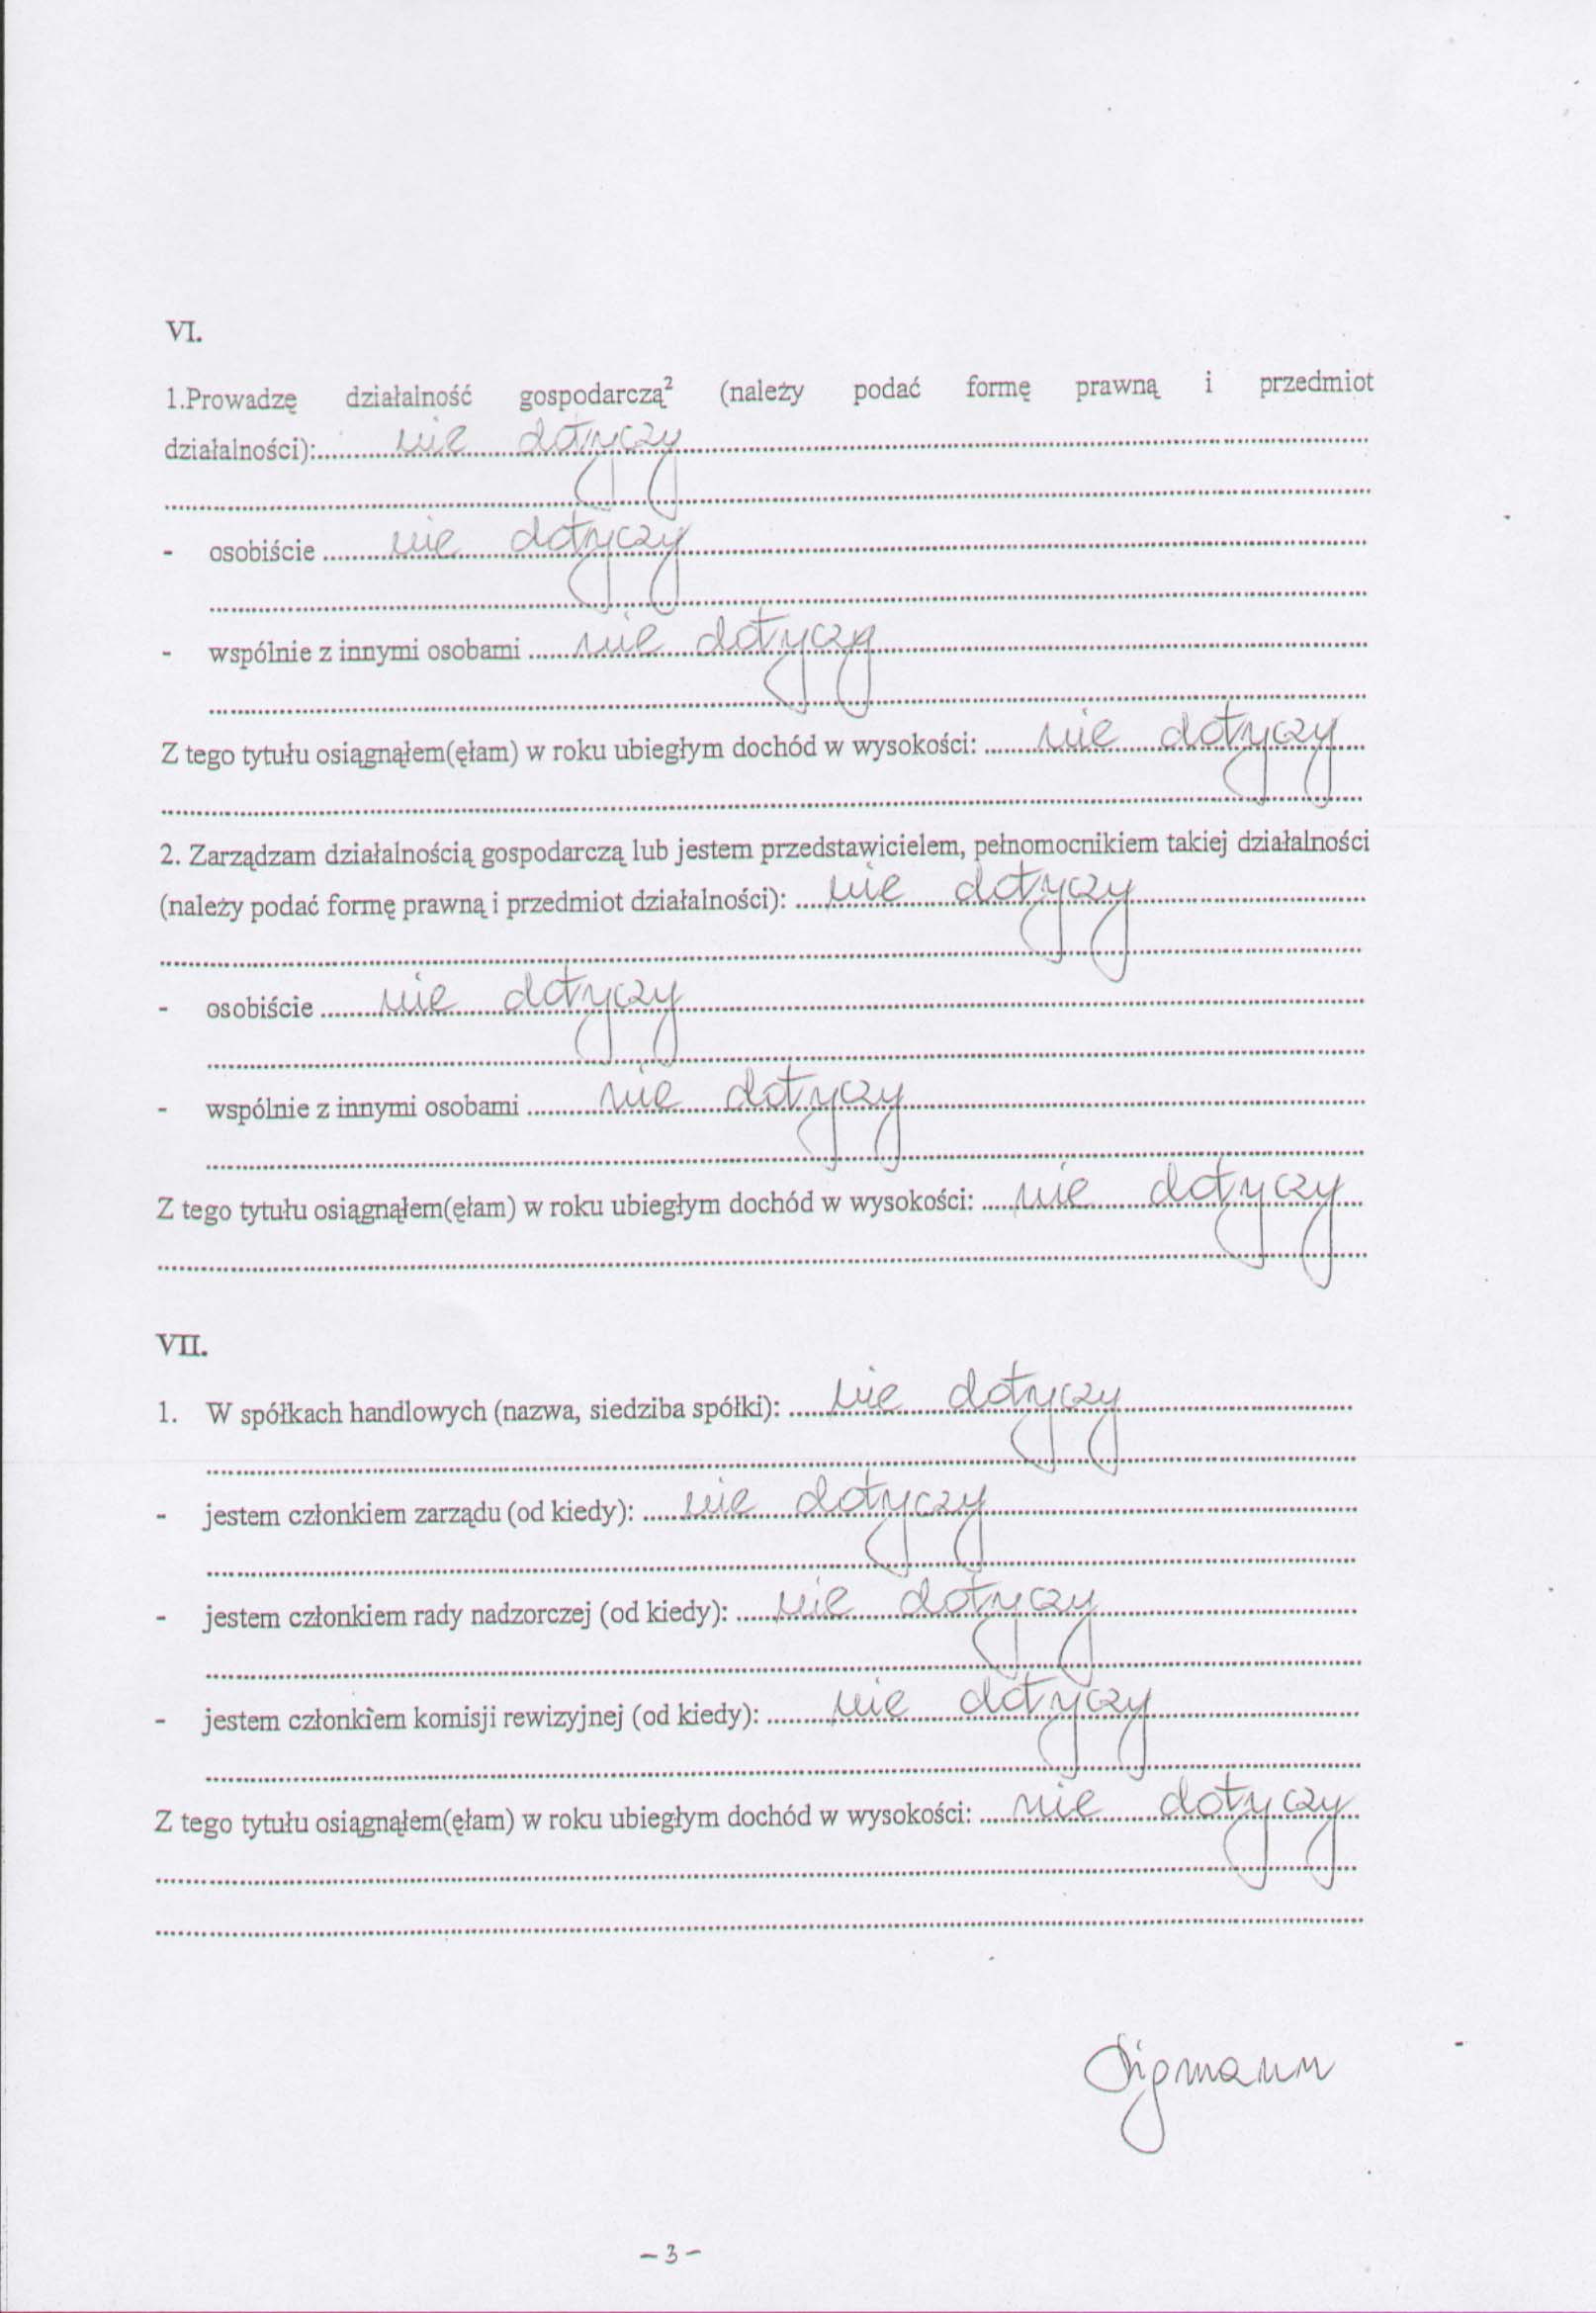 VI.
1.Prowadzę działalność gospodarczą² (należy podać formę prawną i przedmiot
działalności):............nie dotyczy............
............
- osobiście............nie dotyczy............
............
- wspólnie z innymi osobami............nie dotyczy............
............
Z tego tytułu osiągnąłem(ęłam) w roku ubiegłym dochód w wysokości: ............nie dotyczy............
............
2. Zarządzam działalnością gospodarczą lub jestem przedstawicielem, pełnomocnikiem takiej działalności
(należy podać formę prawną i przedmiot działalności): ............nie dotyczy............
............
- osobiście............nie dotyczy............
............
- wspólnie z innymi osobami............nie dotyczy............
............
Z tego tytułu osiągnąłem(ęłam) w roku ubiegłym dochód w wysokości: ............nie dotyczy............
............
VII.
1. W spółkach handlowych (nazwa, siedziba spółki): ............nie dotyczy............
............
- jestem członkiem zarządu (od kiedy): ............nie dotyczy............
............
- jestem członkiem rady nadzorczej (od kiedy): ............nie dotyczy............
............
- jestem członkiem komisji rewizyjnej (od kiedy): ............nie dotyczy............
............
Z tego tytułu osiągnąłem(ęłam) w roku ubiegłym dochód w wysokości: ............nie dotyczy............
............
............
- 3 -